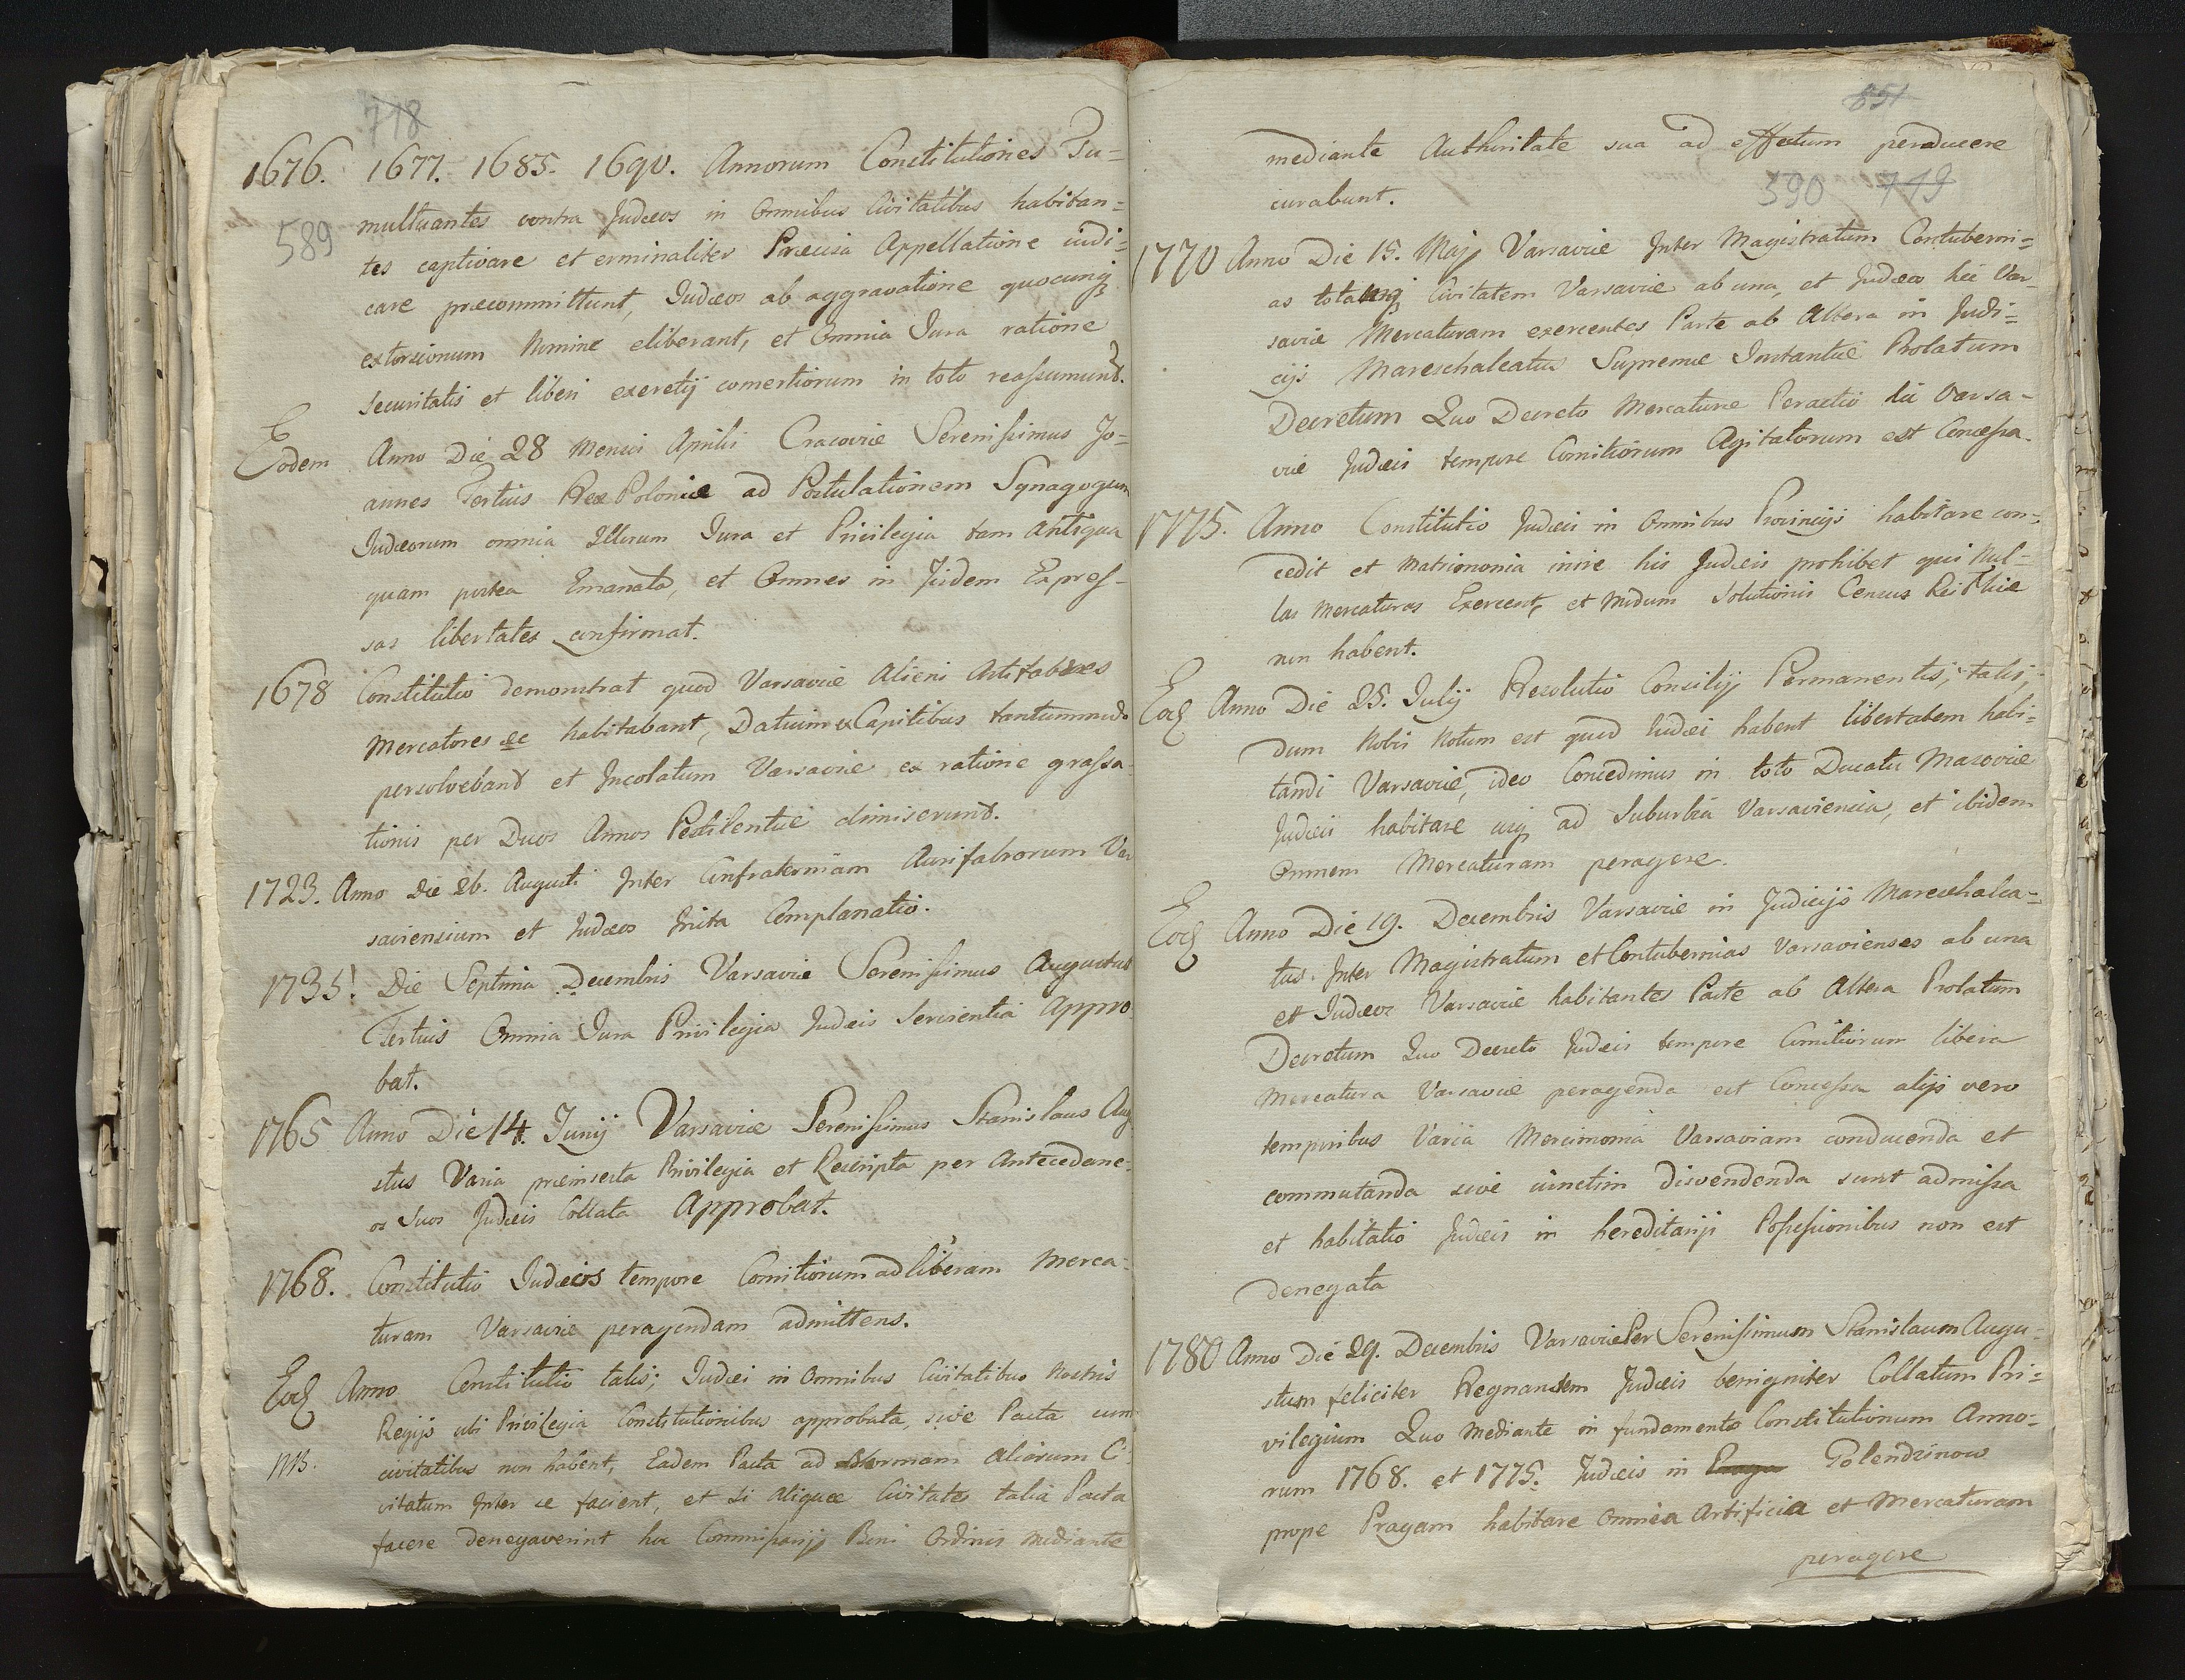 718
1676. 1677. 1685. 1690. Annorum Constitutiones Tu=
589
multuantes contra Judæos in Omnibus Civitatibus habitan=
tes captivare et criminaliter Præcisa Appellatione iudi=
care præcommittunt, Judæos ab aggravatione quocunq
extorsionum Nomine eliberant, et Omnia Jura ratione
securitatis et liberi exercitij comertiorum in toto reassumunt.
Eodem Anno Die 28 Mensis Aprilis Cracoviæ Serenissimus Jo=
annes Tertius Rex Poloniæ ad Postulationem Synagogum
Judæorum omnia Illorum Jura et Privilegia tam Antiqua
quam postea Emanata, et Omnes in Jisdem Expres-
sas libertates confirmat.
1678 Constitutio demonstrat quod Varsaviæ Alieni Artifabres
Mercatores &c habitabant, Datum ex Capitibus tantummodo
persolvebant et Incolatum Varsaviæ ex ratione grassa-
tionis per Duos Annos Pestilentiæ dimiserunt.
1723. Anno Die 26. Augusti Inter Confraterniam Aurifabrorum Var
saviensium et Judæos Inita Complanatio.
1735. Die Septima Decembris Varsaviæ Serenissimus Augustus
Tertius Omnia Jura Privilegia Judæis Servientia Appro
bat.
1765 Anno Die 14. Junij Varsaviæ Serenissimus Stanislaus Aug
stus Varia præinserta Privilegia et Rescripta per Antecedane-
os Suos Judæis Collata Approbat.
1768. Constitutio Judæos tempore Comitiorum ad liberam Merca-
turam Varsaviæ peragendam admittens.
Eod Anno Constitutio talis; Judæi in Omnibus Civitatibus Nostris
Regijs ubi Privilegia Constitutionibus approbata, sive Pacta cum
NB. civitatibus non habent, Eadem Pacta ad Normam Aliorum Ci-
vitatum Inter se facient, et Si Aliquæ Civitates talia Pacta
facere denegaverint hoc Commissarij Boni Ordinis mediante
851
mediante Authoritate sua ad effectum perducere
590 719
curabunt.
1770 Anno Die 15. Maij Varsaviæ Inter Magistratum Contuberni=
as totamq Civitatem Varsaviæ ab una, et Judæos hic Var-
saviæ Mercaturam exercentes Parte ab Altera in Judi=
cijs Mareschalcatus Supremæ Instantiæ Prolatum
Decretum Quo Decreto Mercaturæ Peractio hic Varsa-
viæ Judæis tempore Comitiorum Agitatorum est Concessa.
1775. Anno Constitutio Judæis in Omnibus Provincijs habitare con-
cedit et Matrimonia inire his Judæis prohibet qui Nul-
las Mercaturas Exercent, et Modum Solutionis Census Rei Pblicæ
non habent.
Eod Anno Die 25. Julij Resolutio Consilij Permanentis, talis;
dum Nobis Notum est quod Judæi habent libertatem habi=
tandi Varsaviæ, ideo Concedimus in toto Ducatu Masoviæ
Judæis habitare usq ad Suburbia Varsaviensia, et ibidem
Omnem Mercaturam peragere.
Eod Anno Die 19. Decembris Varsaviæ in Judicijs Mareschalca=
tus. Inter Magistratum et Contubernias Varsavienses ab una
et Judæos Varsaviæ habitantes Parte ab Altera Prolatum
Decretum Quo Decreto Judæis tempore Comitiorum libera
Mercatura Varsaviæ peragenda est Concessa alijs vero
temporibus Varia Mercimonia Varsaviam conducenda et
commutanda sive iunctim disvendenda sunt admissa
et habitatio Judæis in hereditarijs Possessionibus non est
denegata
1780 Anno Die 29. Decembris Varsaviæ Per Serenissimum Stanislaum Augu=
stum feliciter Regnantem Judæis benigniter Collatum Pri=
vilegium Quo Mediante in fundamento Constitutionum Anno=
rum 1768. et 1775. Judæis in Praga Golendzinow
prope Pragam habitare Omnia Artificia et Mercaturam
peragere